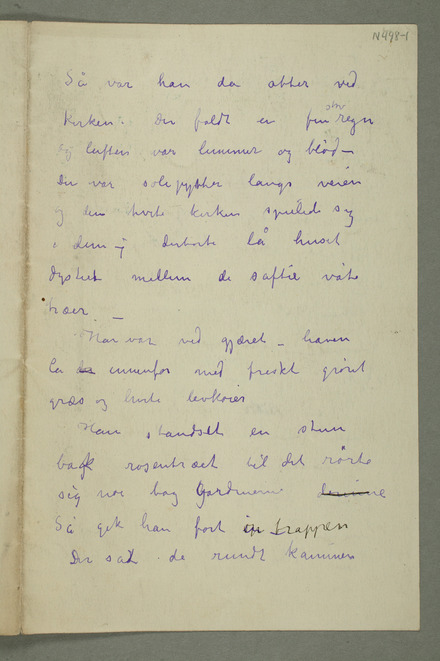 N 498-1
Så var han da atter ved
kirken. Der faldt en fin støv regn
og luften var lummer og blød –
Der var sølepytter langs veien
og den hvite kirken speiled sig
i dem – derborte lå huset
dystert mellem de saftie våte
træer. –
Han var ved gjæret – haven
la innenfor med freskt grønt
græs og hvite levkøier
Han standset en stun
bak rosentræet til det rørte
sig noe bag Gardinerne
Så gik han fort trappen
Der sad de rundt kaminen